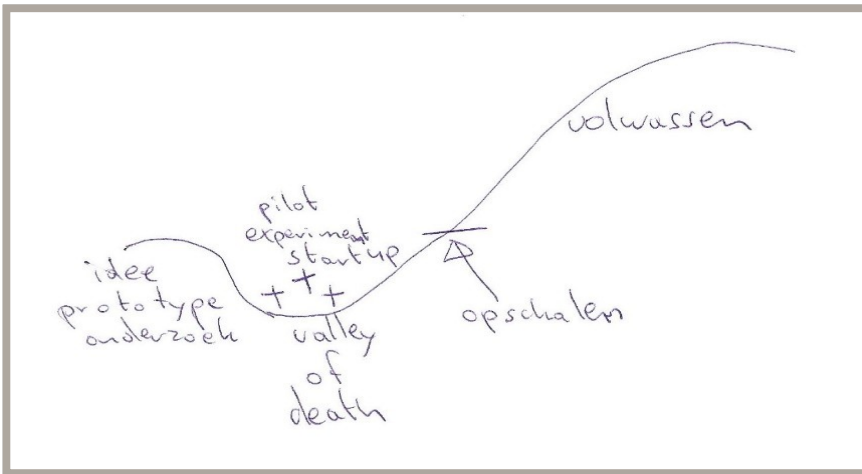 idee
prototype
onderzoek
pilot
experiment
startup
valley
of
death
opschalen
volwassen